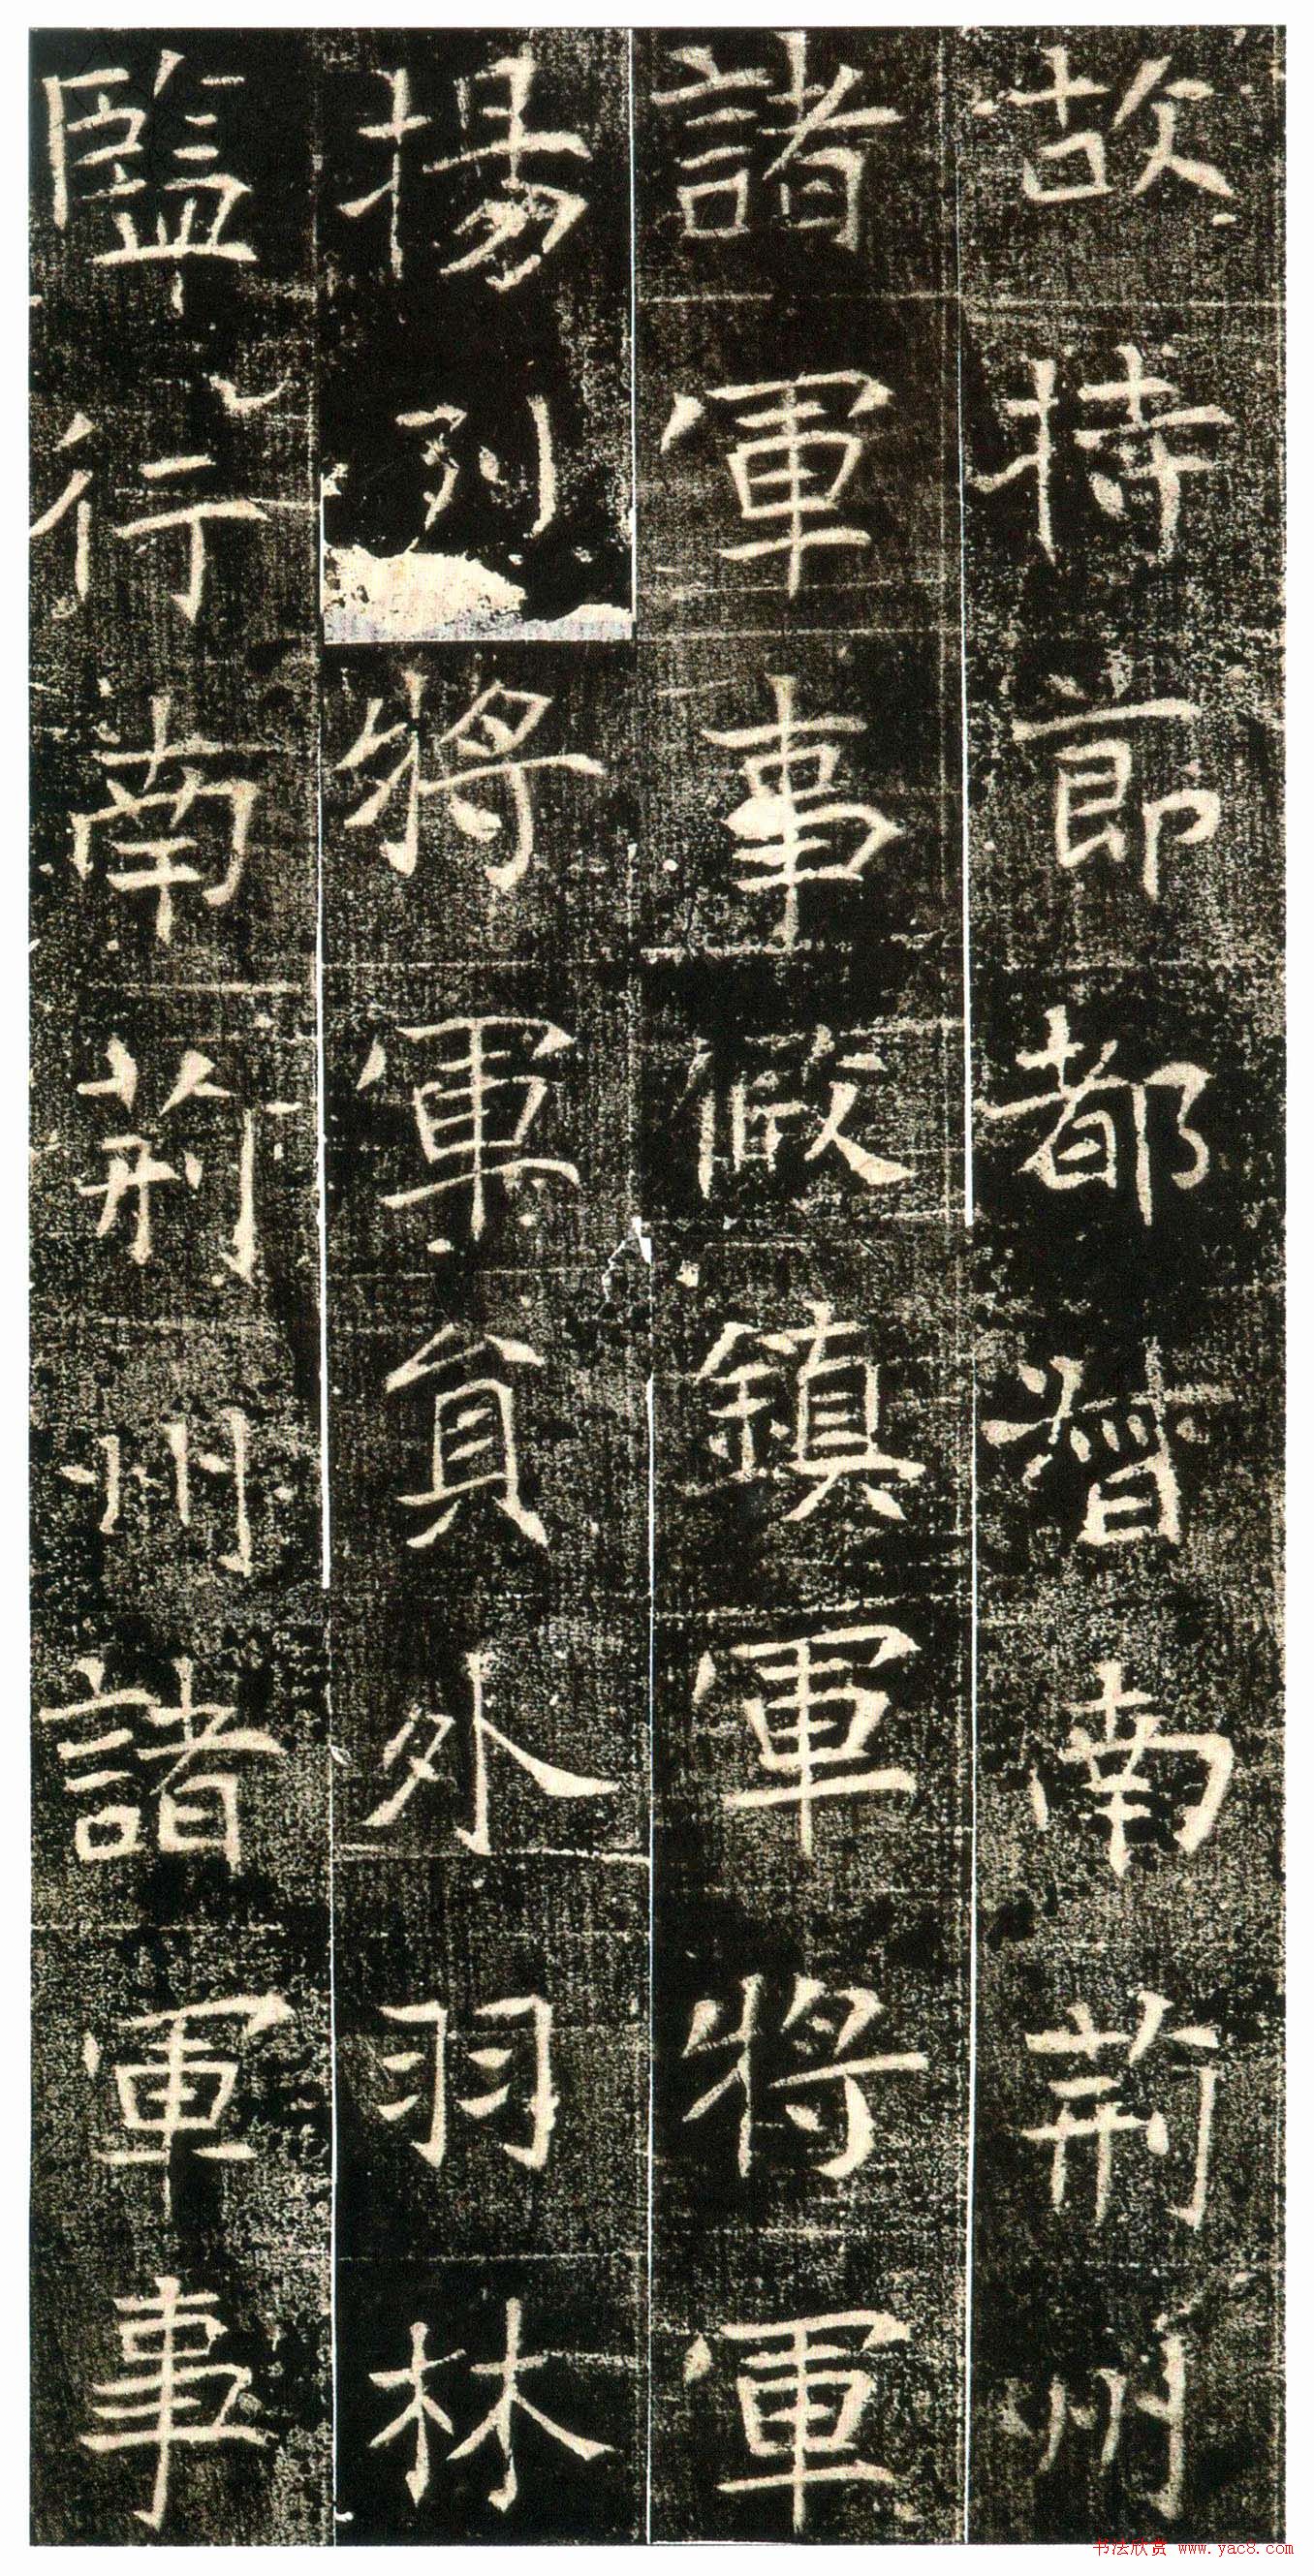 故持節都督南荊州
諸軍事假鎮軍將軍
揚列將軍員外羽林
監行南荊州諸軍事
书法欣赏 www.yac8.com